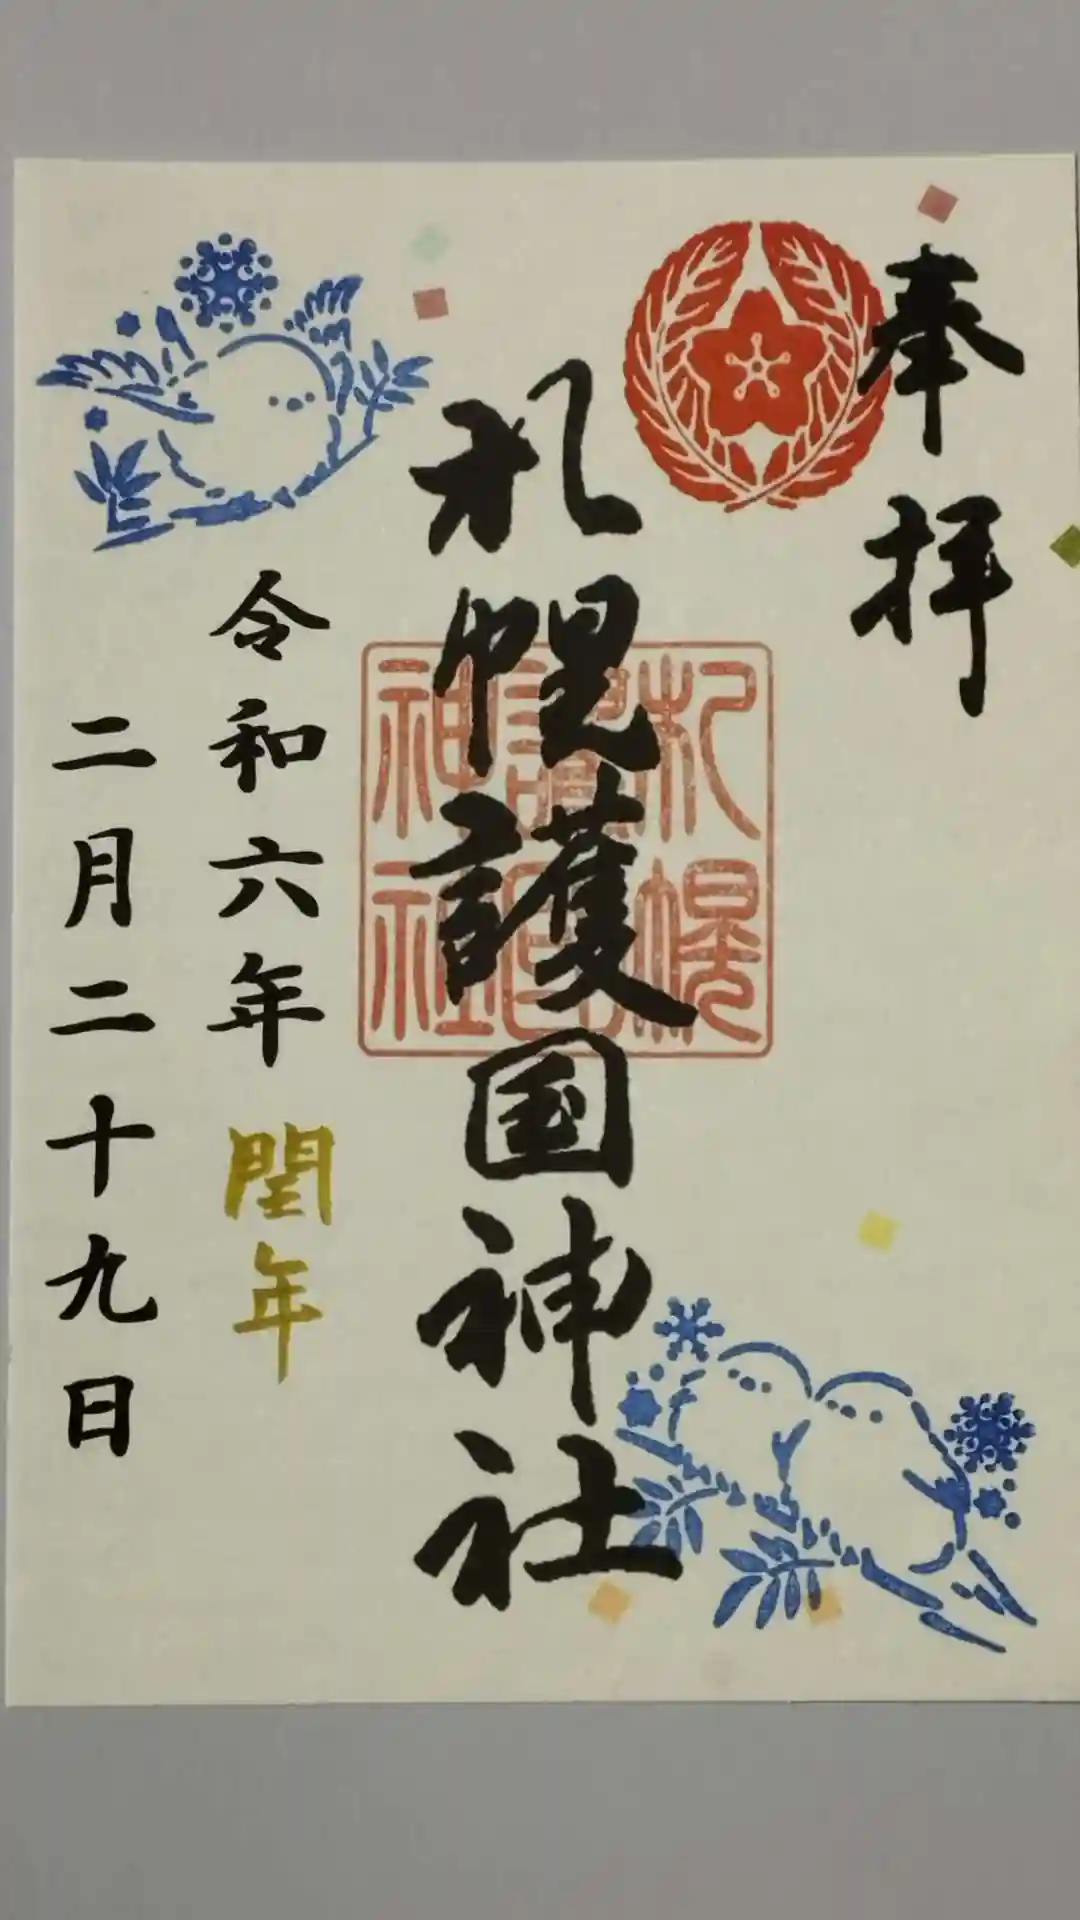 奉拝
札幌護国神社
札幌
護国
神社
令和六年 閏年
二月二十九日